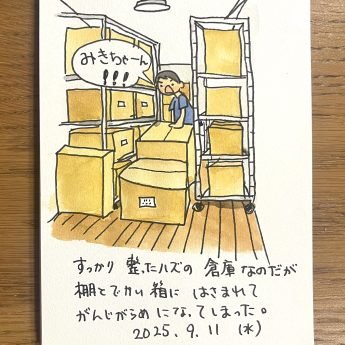 みきちゃーん
!!!
すっかり 整ったハズの 倉庫なのだが
棚とでかい箱に はさまれて
がんじがらめ になってしまった。
2025.9.11 (水)